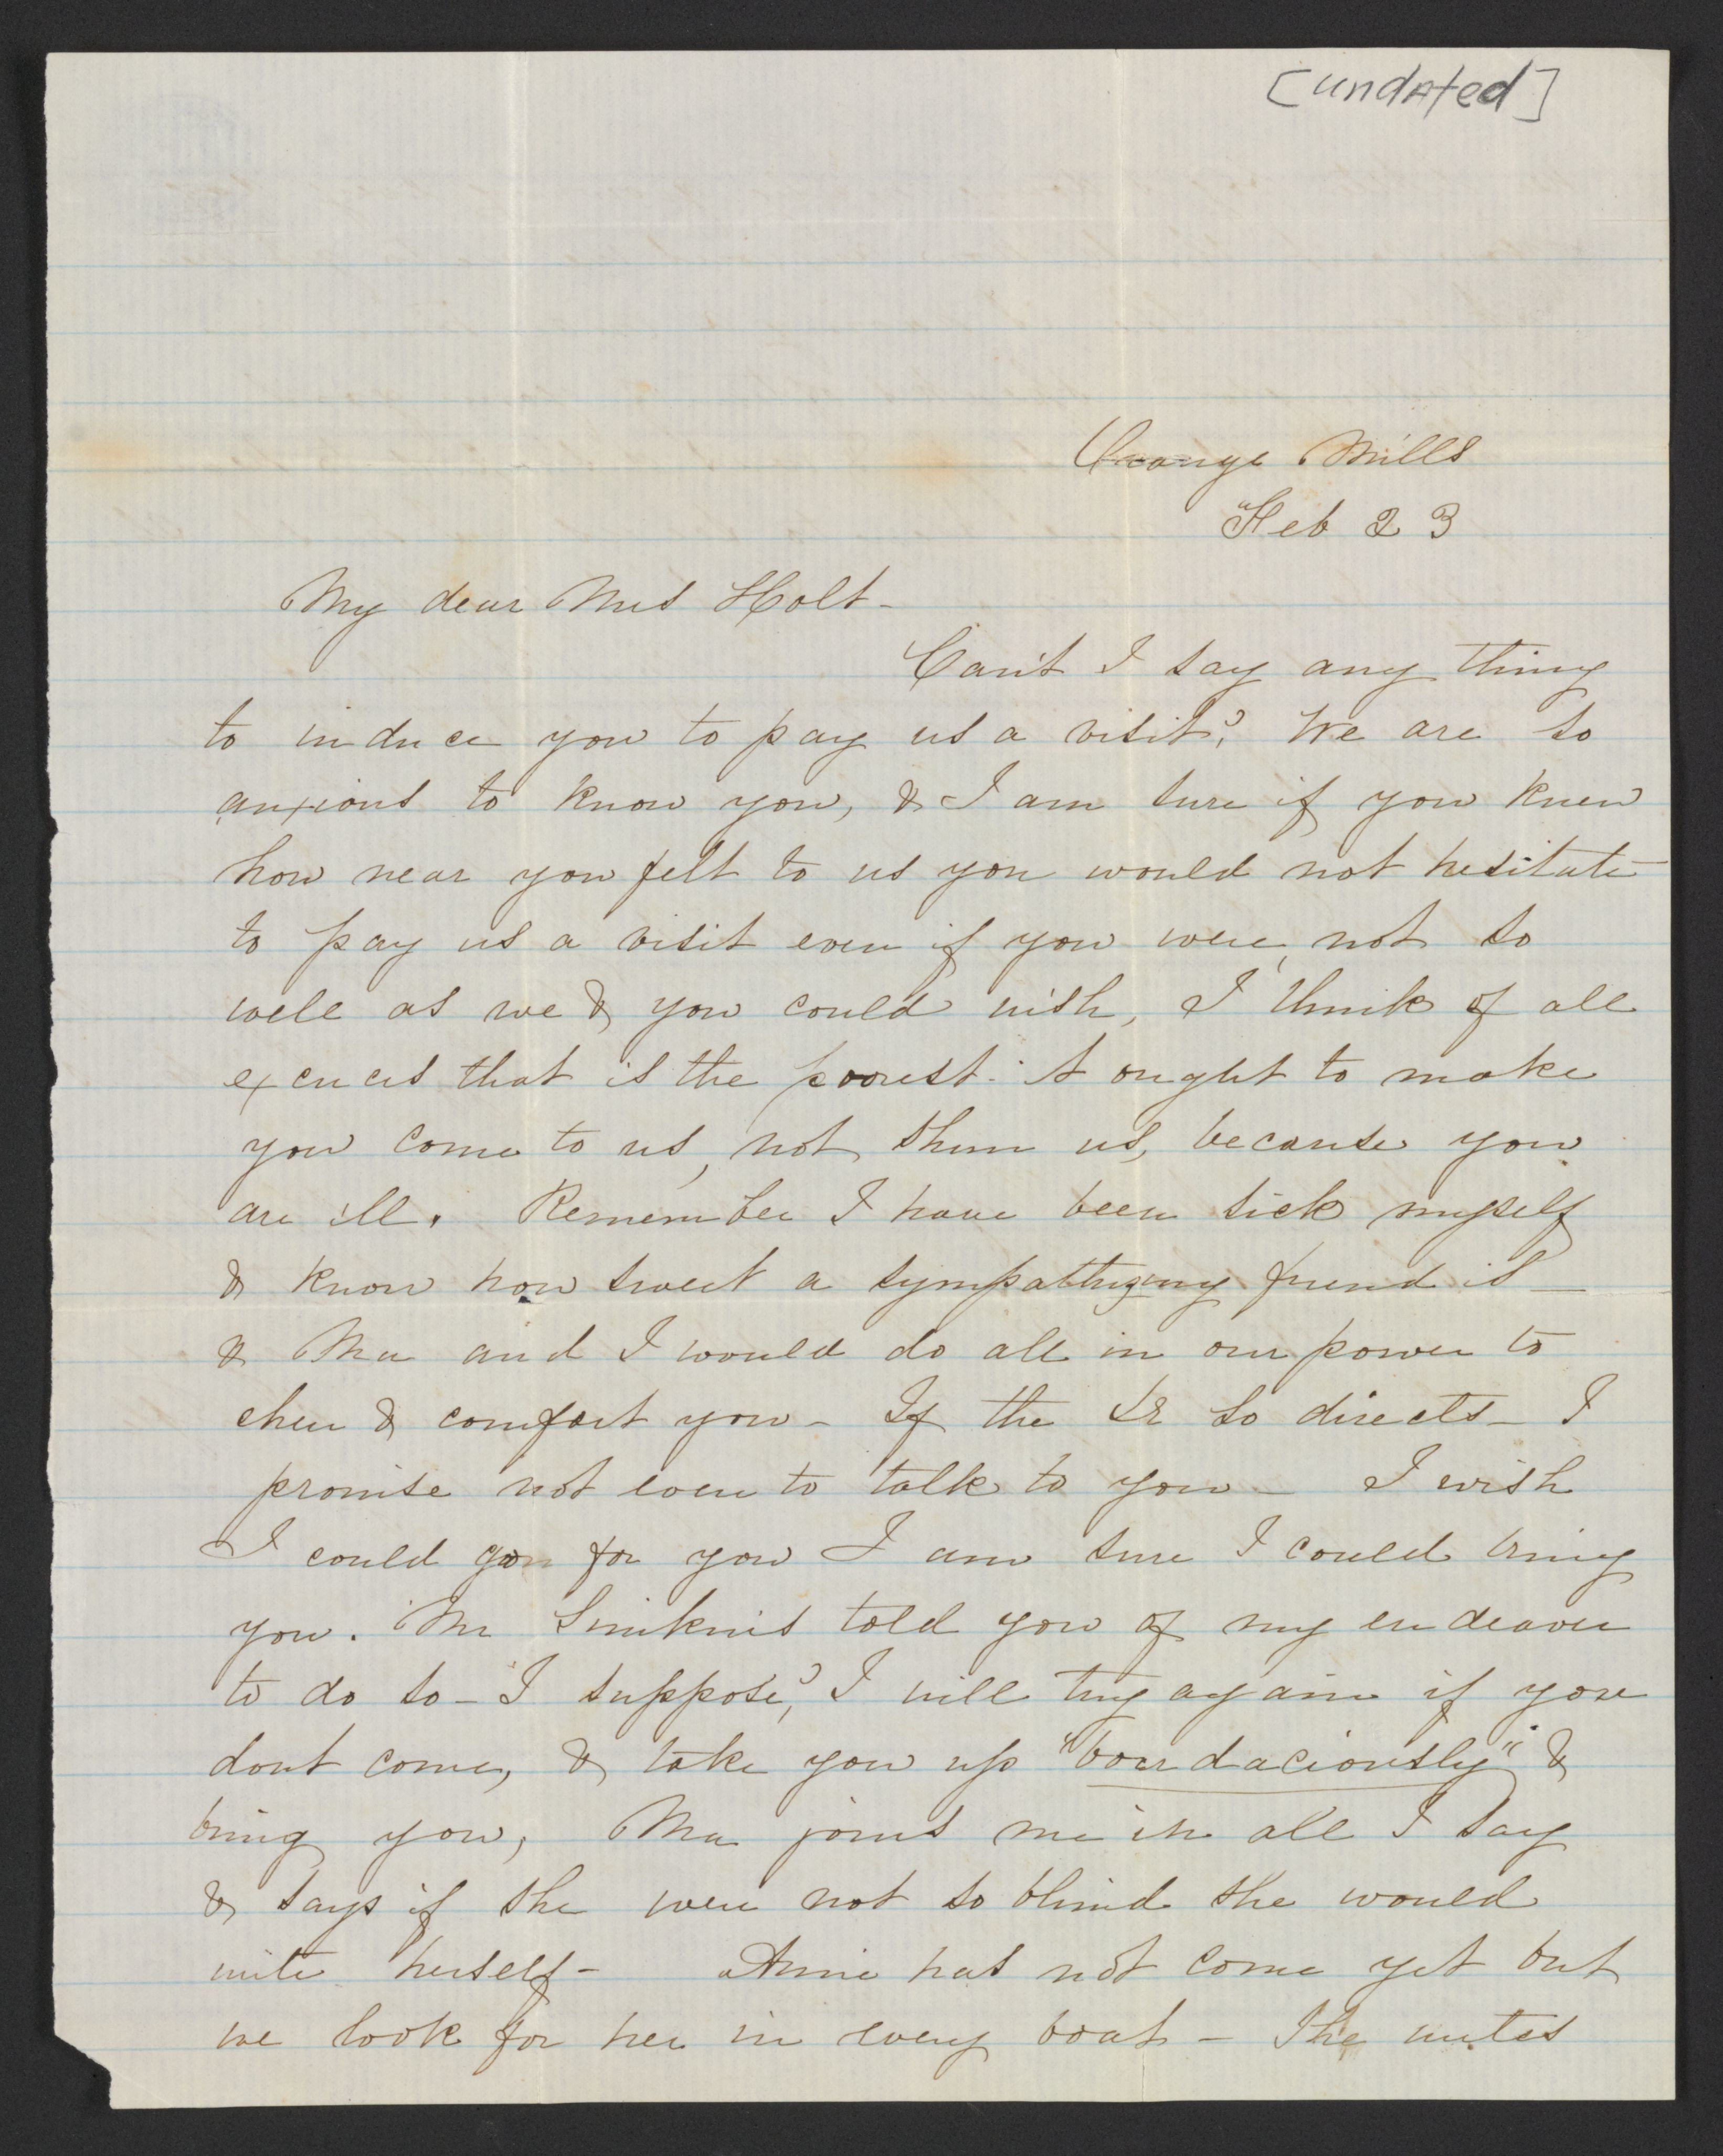 [undated]
Orange Mills
Feb 23
My dear Mrs Holt-
Can't I say any thing
to induce you to pay us a visit? We are so
anxious to know you, & I am sure if you knew
how near you felt to us you would not hesitate
to pay us a visit even if you were not so
well as we & you could wish, I think of all
excuces that is the poorest. It ought to make
you come to us, not shun us, because you
are ill. Remember I have been sick myself
& know how sweet a sympathizing friend is -
& Ma and I would do all in our power to
cheer & comfort you - If the Dr so directs - I
promise not even to talk to you - I wish
I could go for you I am sure I could bring
you. Mr told you of my endeavor
to do so - I suppose? I will try again if you
dont come, & take you up "boardaciously" &
bring you, Ma joins me in all I say
& says if she were not so blind she would
write herself - Annie has not come yet but
we look for her in every boat - She writes